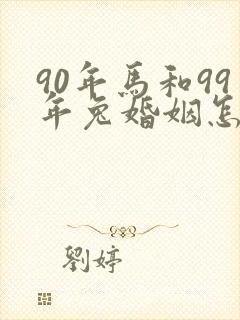 90年馬和99
年兔婚姻怎
劉婷